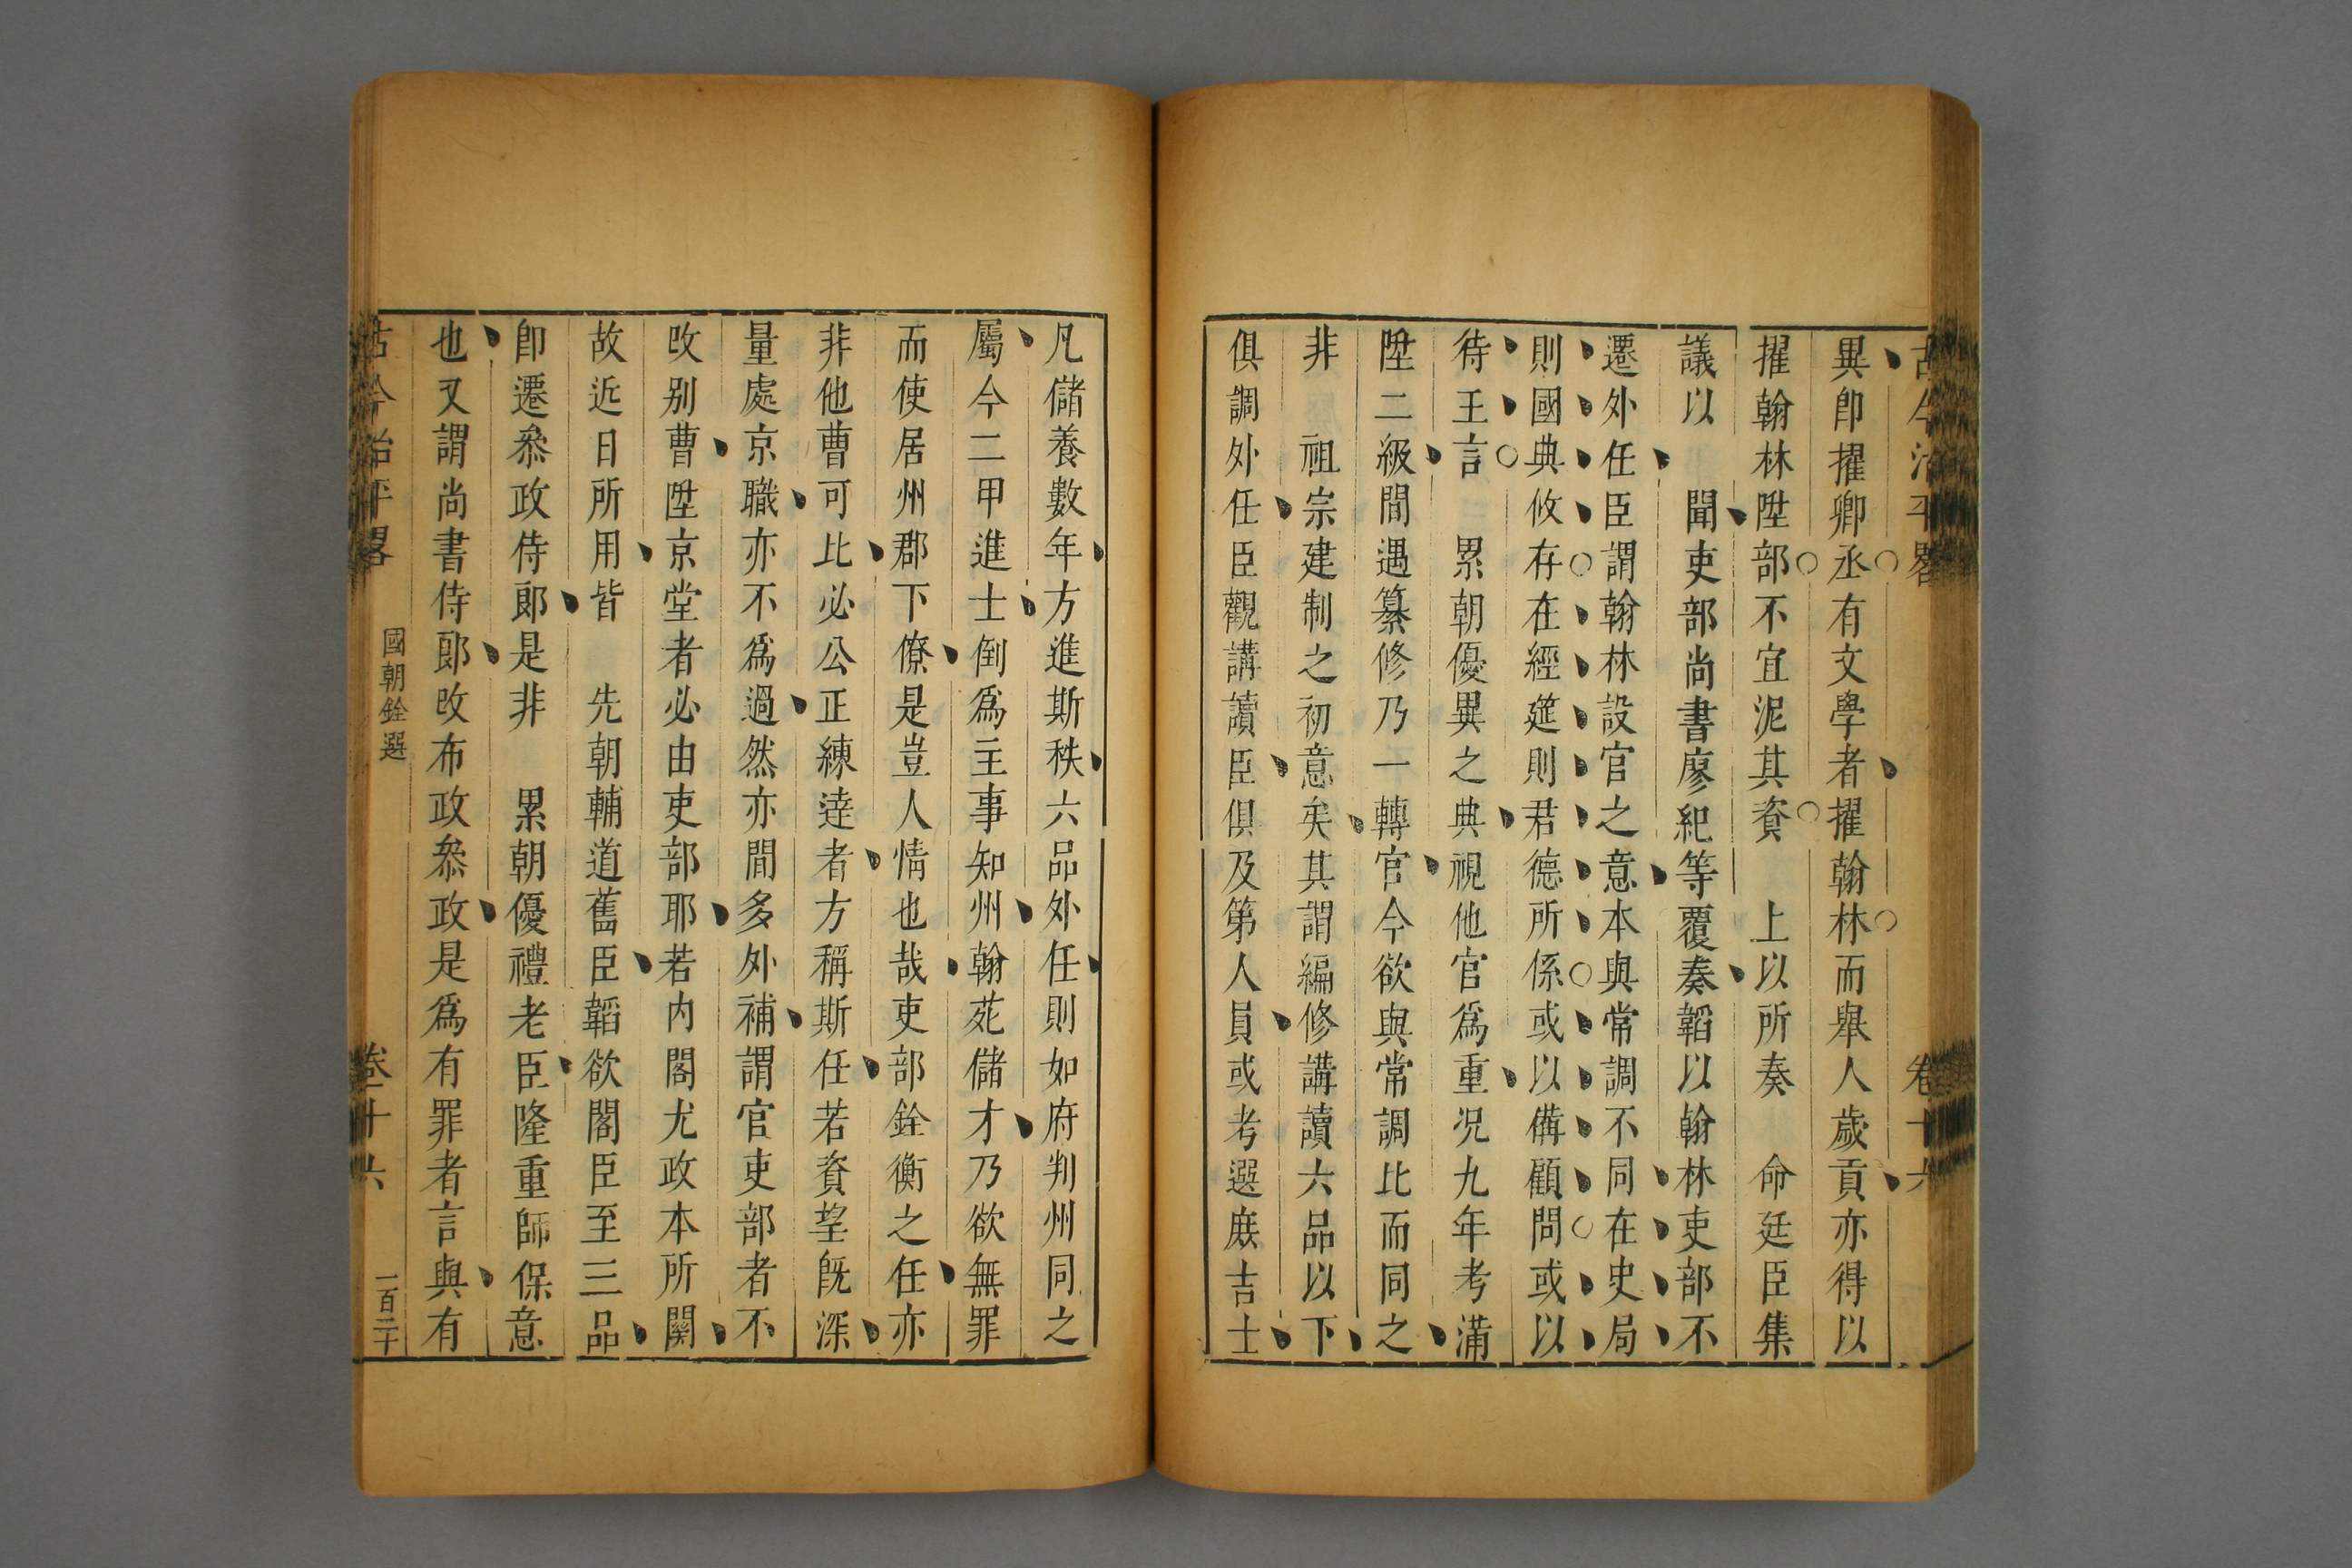 古今治平畧 卷十六
異卽擢卿丞有文學者擢翰林而舉人歲貢亦得以
擢翰林陞部不宜泥其資 上以所奏 命廷臣集
議以 聞吏部尚書廖紀等覆奏韜以翰林吏部不
遷外任臣謂翰林設官之意本與常調不同在史局
則國典攸存在經筵則君德所係或以備顧問或以
待王言 累朝優異之典視他官爲重况九年考滿
陞二級間遇纂修乃一轉官今欲與常調比而同之
非 祖宗建制之初意矣其謂編修講讀六品以下
俱調外任臣觀講讀臣俱及第人員或考選庻吉士
凡儲養數年方進斯秩六品外任則如府判州同之
屬今二甲進士倒爲主事知州翰苑儲才乃欲無罪
而使居州郡下僚是豈人情也哉吏部銓衡之任亦
非他曹可比必公正練達者方稱斯任若資望旣深
量處京職亦不爲過然亦間多外補謂官吏部者不
攺别曹陞京堂者必由吏部耶若内閣尤政本所關
故近日所用皆 先朝輔道舊臣韜欲閣臣至三品
卽遷叅政侍郎是非 累朝優禮老臣隆重師保意
也又謂尚書侍郎攺布政叅政是爲有罪者言與有
古今治平畧 國朝銓選 卷十六 一百二十